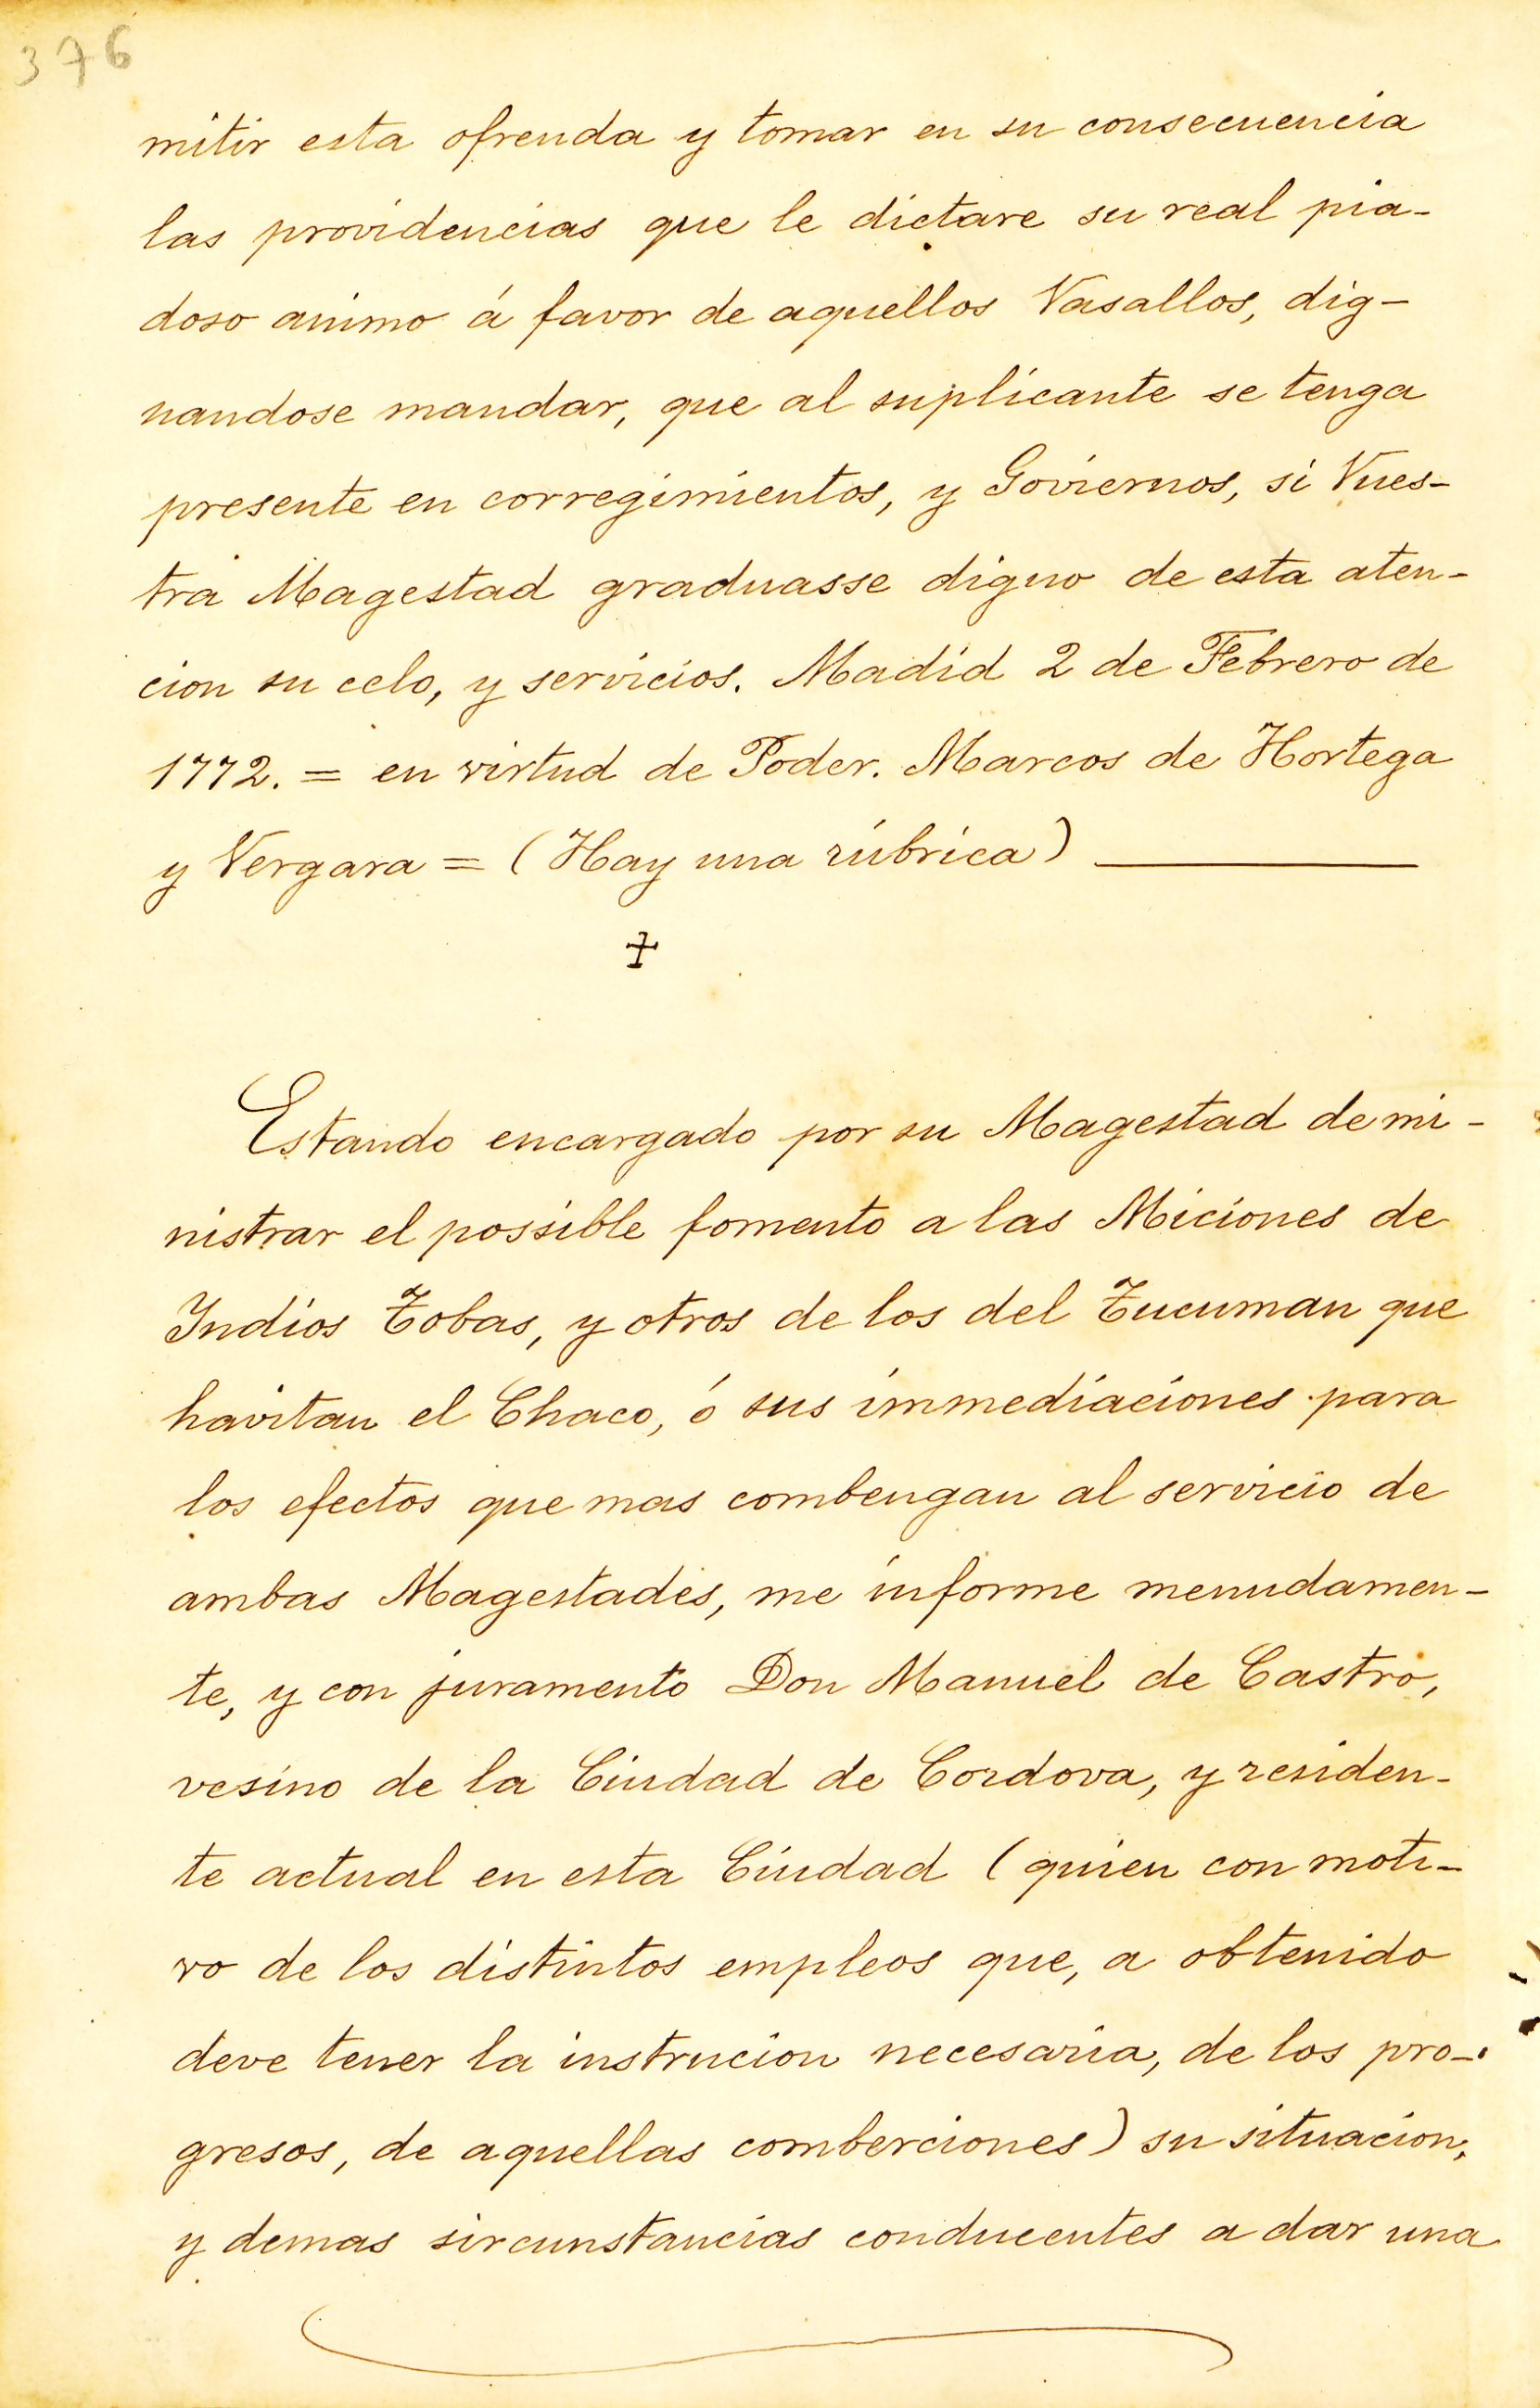 376
mitir esta ofrenda y tomar en su consecuencia
las providencias que le dictare su real pia-
doso animo á favor de aquellos Vasallos, dig-
nandose mandar, que al suplicante se tenga
presente en corregimientos, y Goviernos, si Vues-
tra Magestad graduasse digno de esta aten-
cion su celo, y servicios. Madid 2 de Febrero de
1772. = en virtud de Poder. Marcos de Hortega
y Vergara = (Hay una rúbrica) ————
✝
Estando encargado por su Magestad de mi-
nistrar el possible fomento a las Miciones de
Indios Tobas, y otros de los del Tucuman que
havitan el Chaco, ó sus immediaciones para
los efectos que mas combengan al servicio de
ambas Magestades, me informe menudamen-
te, y con juramento Don Manuel de Castro,
vesino de la Ciudad de Cordova, y residen-
te actual en esta Ciudad (quien con moti-
vo de los distintos empleos que, a obtenido
deve tener la instrucion necesaria, de los pro-
gresos, de aquellas comberciones) su situacion,
y demas sircunstancias conducentes a dar una